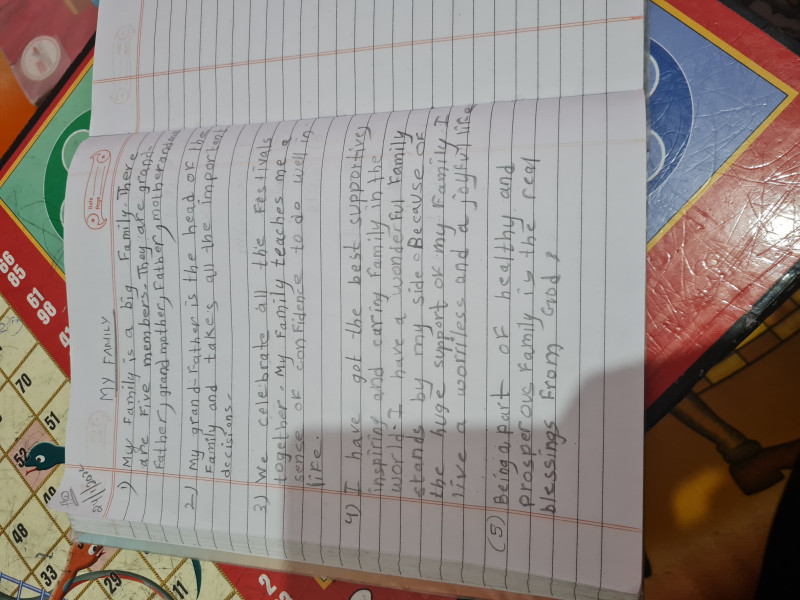 MY FAMILY
1) My Family is a big Family. There
are Five members. They are grand-
Father, grand mother, Father, mother and me
2) My grand-Father is the head of the
Family and take's all the important
decisions.
3) We celebrate all the Festivals
together. My Family teaches me a
sense of confidence to do well in
life.
4) I have got the best supportive,
inspiring and caring Family in the
world. I have a wonderful Family
stands by my side. Because of
the huge support of my Family I
live a worriless and a joyful life
(5) Being a part of healthy and
prosperous Family is the real
blessings From God,
66
85
61
98
70
51
52
48
33
29
11
2